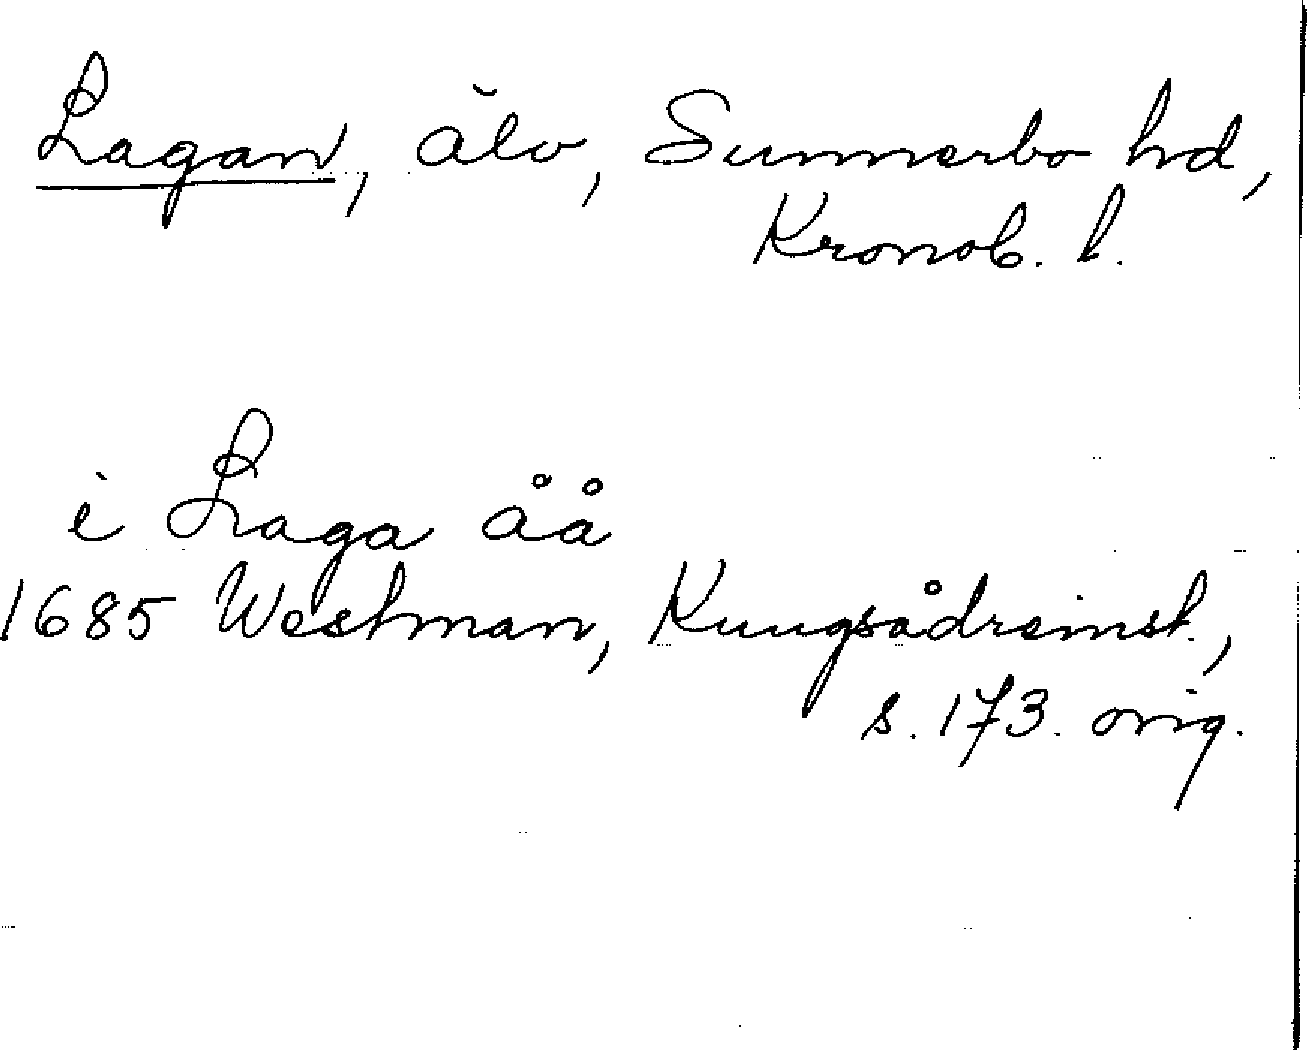 Lagan, älv, Sunnerbo hd,
Kronob. l.
i Laga åå
1685 Westman, Kungsådreinst.,
s. 173. orig.